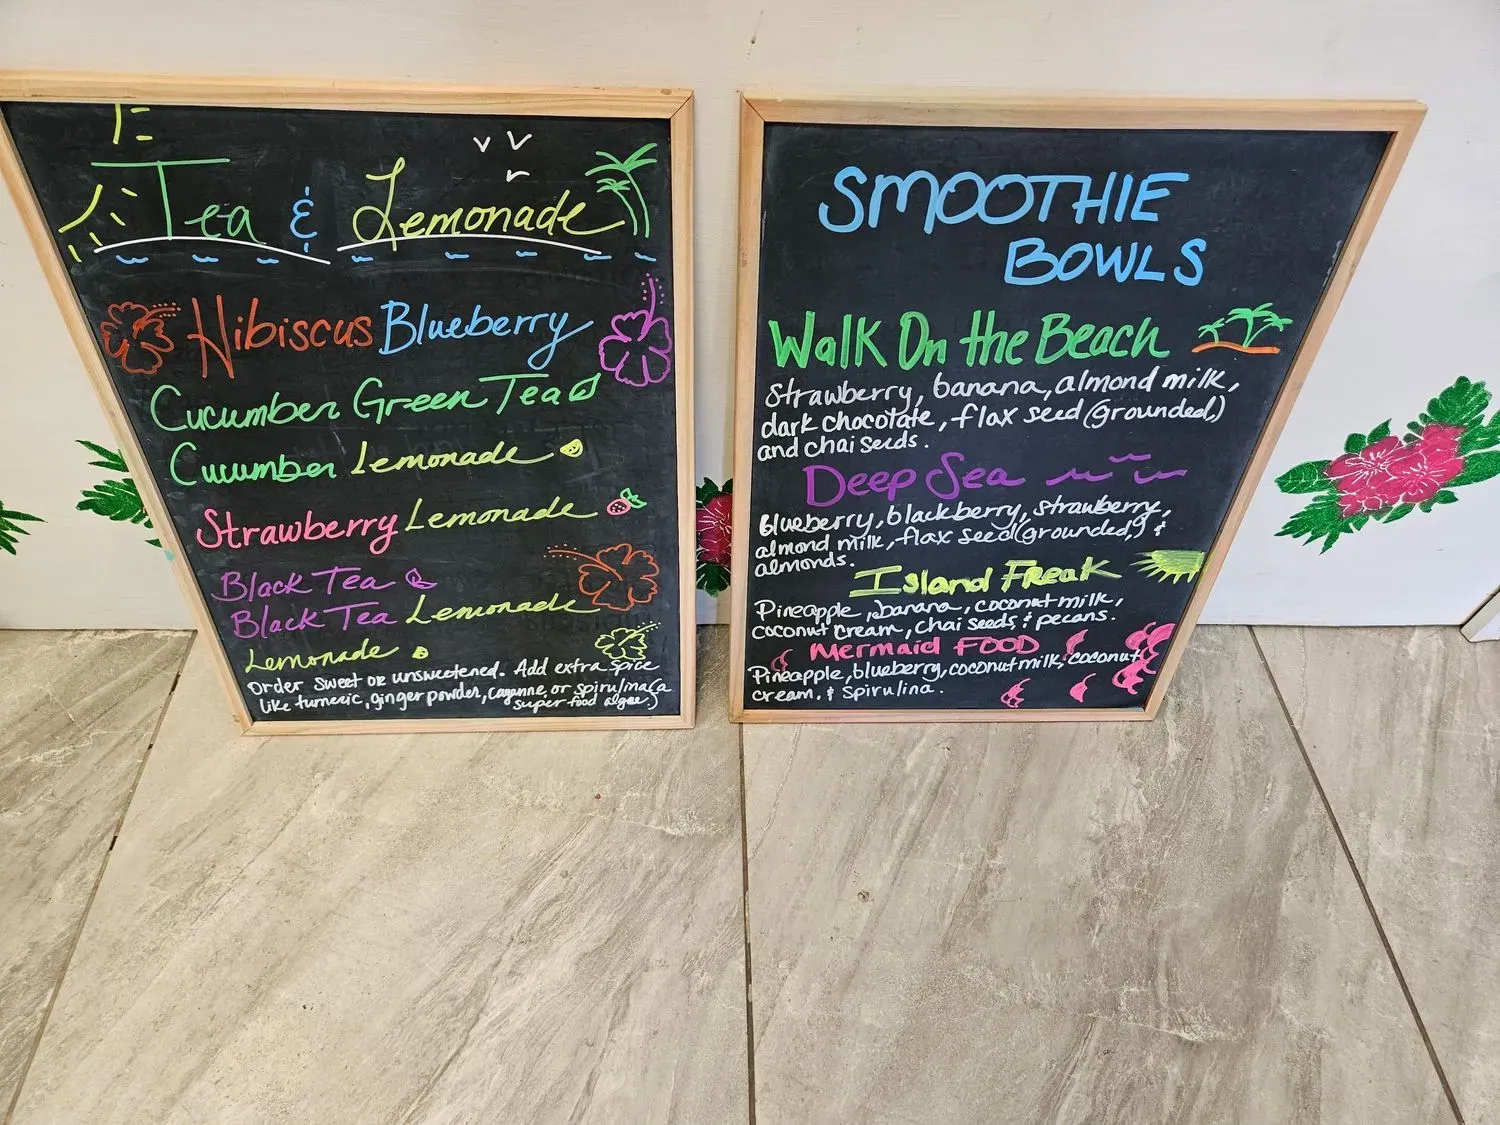 Tea & Lemonade
Hibiscus Blueberry
Cucumber Green Tea
Cucumber Lemonade
Strawberry Lemonade
Black Tea
Black Tea Lemonade
Lemonade
Order sweet or unsweetened. Add extra spice
like turmeric, ginger powder, cayanne, or spirulina (a
super food algae)
SMOOTHIE
BOWLS
Walk On the Beach
Strawberry, banana, almond milk,
dark chocolate, flax seed (grounded,)
and chai seeds.
Deep Sea
blueberry, blackberry, strawberry,
almond milk, flax seed (grounded,) &
almonds.
Island Freak
Pineapple, banana, coconut milk,
coconut cream, chai seeds & pecans.
Mermaid FOOD
Pineapple, blueberry, coconut milk, coconut
cream, & spirulina.